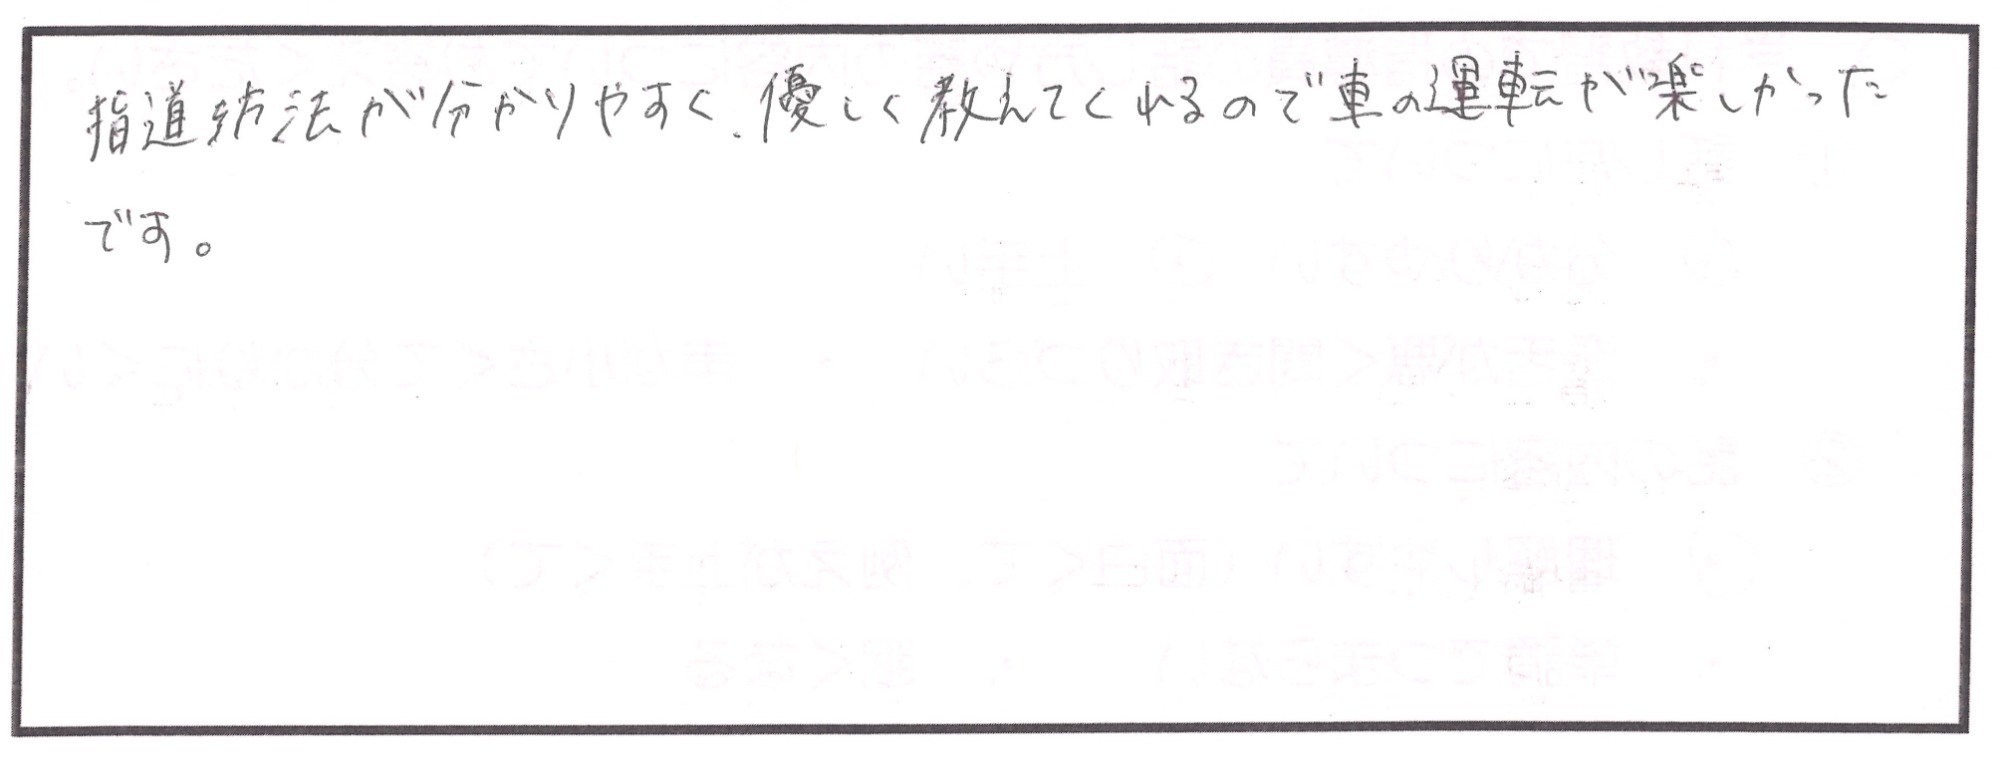 指導方法が分かりやすく、優しく教えてくれるので車の運転が楽しかった
です。